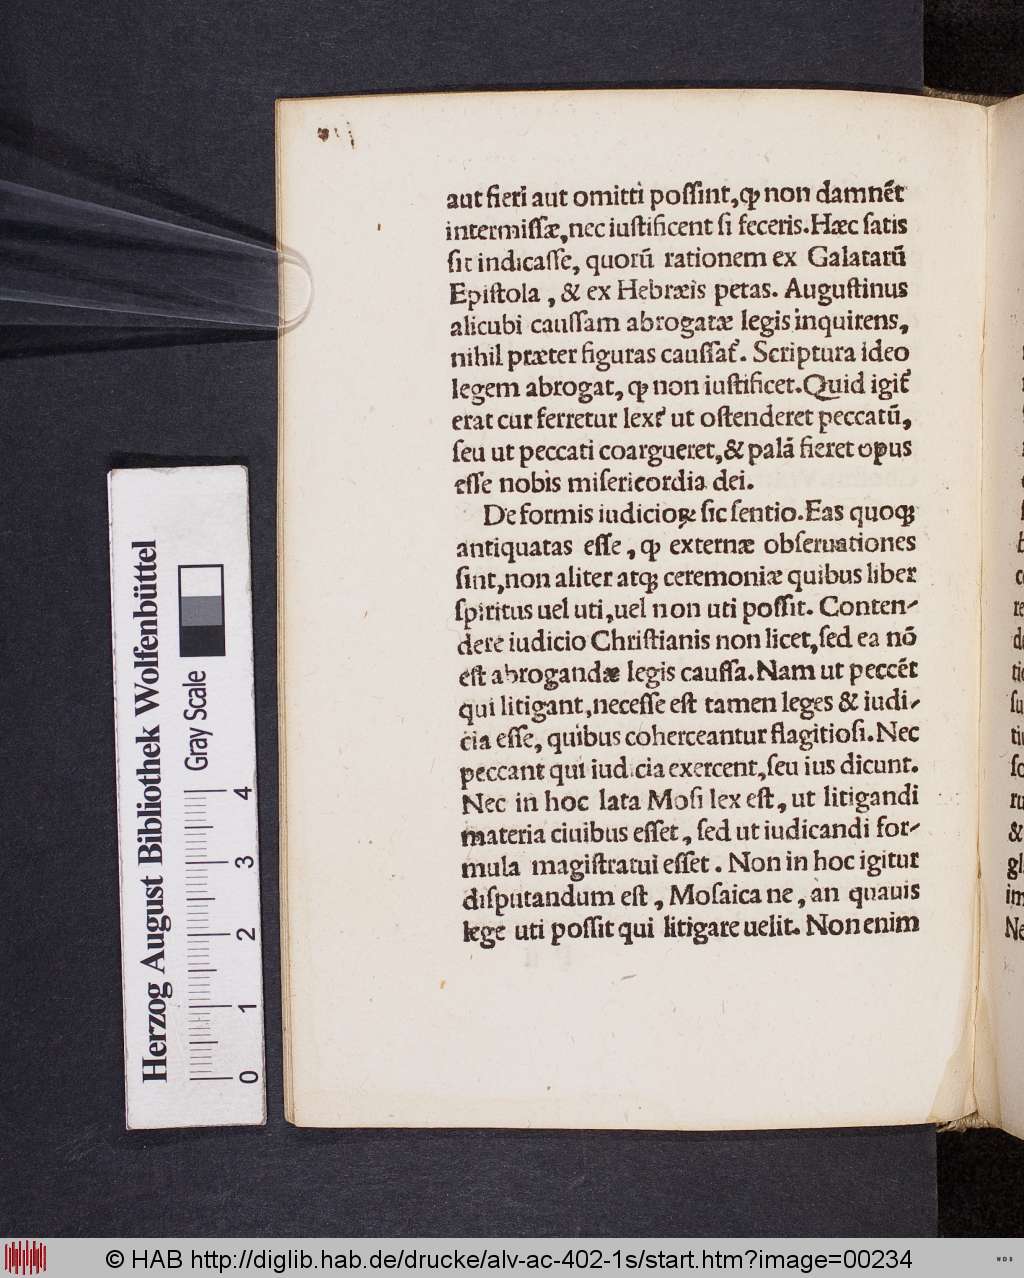 aut fieri aut omitti possint, ꝙ non damnēt
intermissæ, nec iustificent si feceris. Hæc satis
sit indicasse, quorū rationem ex Galatarū
Epistola, & ex Hebræis petas. Augustinus
alicubi caussam abrogatæ legis inquirens,
nihil præter figuras caussatˀ. Scriptura ideo
legem abrogat, ꝙ non iustificet. Quid igitˀ
erat cur ferretur lex? ut ostenderet peccatū,
seu ut peccati coargueret, & palā fieret opus
esse nobis misericordia dei.
De formis iudicioꝝ sic sentio. Eas quoqꝫ
antiquatas esse, ꝙ externæ obseruationes
sint, non aliter atqꝫ ceremoniæ quibus liber
spiritus uel uti, uel non uti possit. Conten-
dere iudicio Christianis non licet, sed ea nō
est abrogandæ legis caussa. Nam ut peccēt
qui litigant, necesse est tamen leges & iudi-
cia esse, quibus coherceantur flagitiosi. Nec
peccant qui iudicia exercent, seu ius dicunt.
Nec in hoc lata Mosi lex est, ut litigandi
materia ciuibus esset, sed ut iudicandi for-
mula magistratui esset. Non in hoc igitur
disputandum est, Mosaica ne, an quauis
lege uti possit qui litigare uelit. Non enim
Herzog August Bibliothek Wolfenbüttel
Gray Scale
0 1 2 3 4
© HAB http://diglib.hab.de/drucke/alv-ac-402-1s/start.htm?image=00234